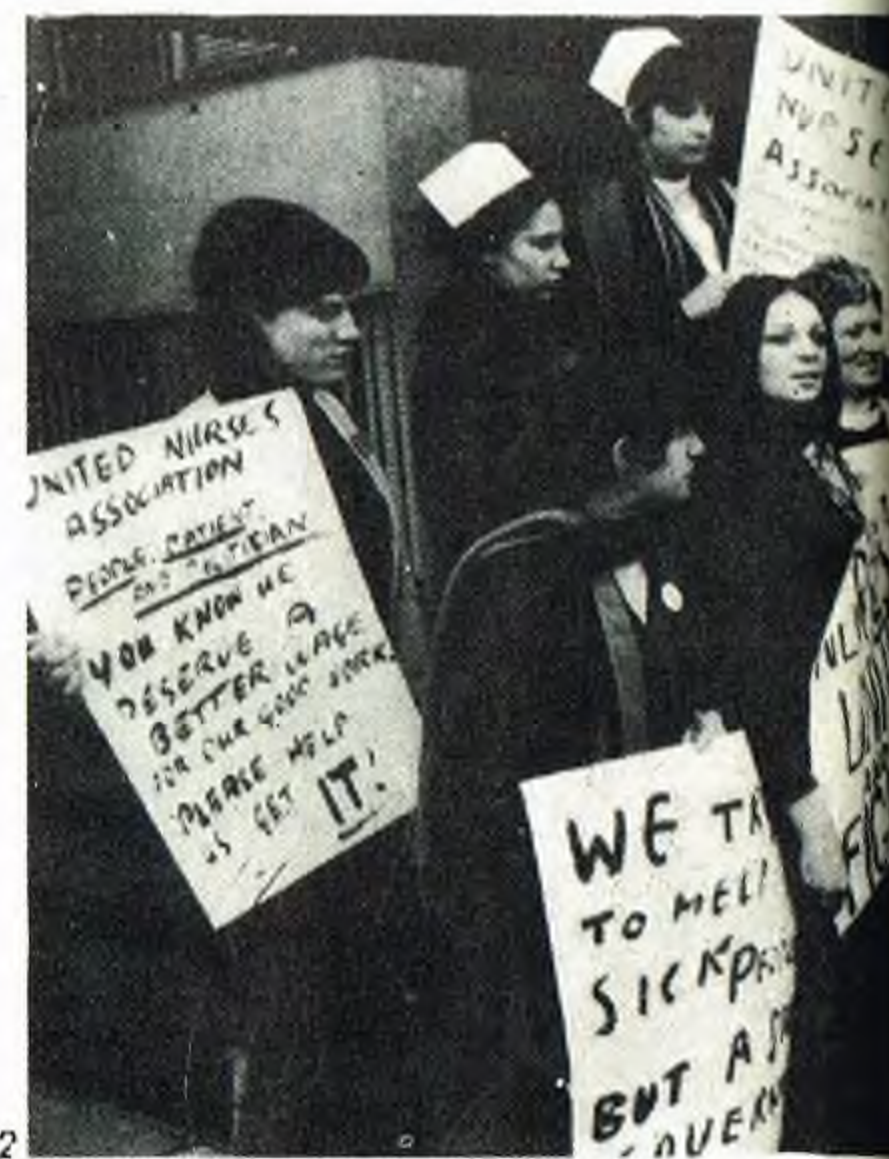 UNITED NURSES
ASSOCIATION
PEOPLE, PATIENT,
AND POLITICIAN
YOU KNOW WE
DESERVE A
BETTER WAGE
FOR OUR GOOD WORK.
PLEASE HELP
US GET IT!
UNIT
NURSE
ASSOCIAT
WE TR
TO HELP
SICK PEO
BUT A S
GOVERN
2